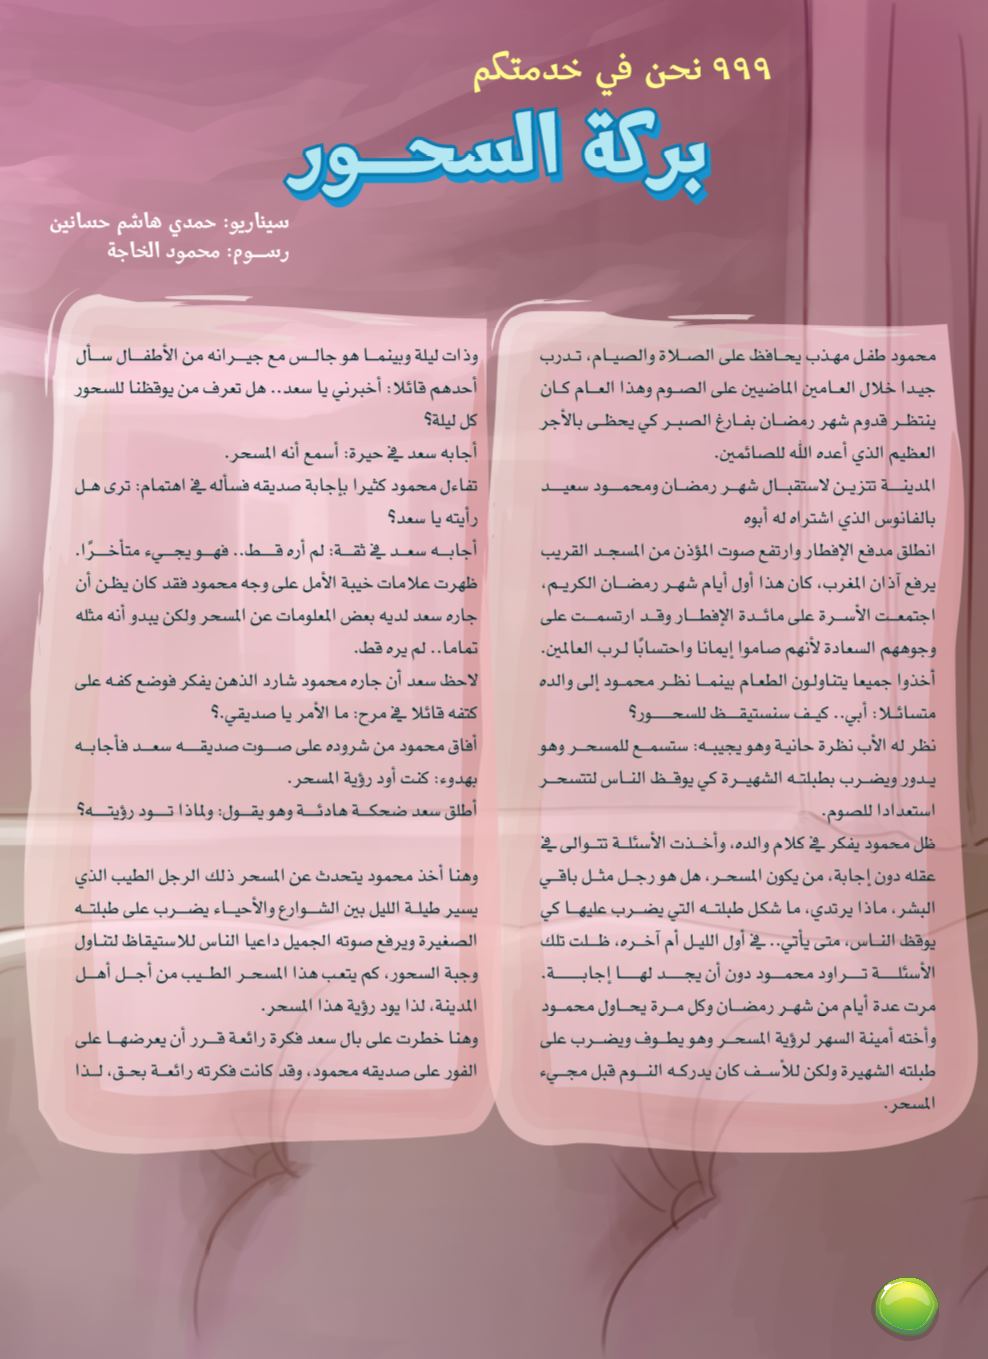 ٩٩٩ نحن في خدمتكم
بركة السحور
سيناريو: حمدي هاشم حسانين
رسوم: محمود الخاجة
محمود طفل مهذب يحافظ على الصلاة والصيام، تدرب
جيدا خلال العامين الماضيين على الصوم وهذا العام كان
ينتظر قدوم شهر رمضان بفارغ الصبر كي يحظى بالأجر
العظيم الذي أعده الله للصائمين.
المدينة تتزين لاستقبال شهر رمضان ومحمود سعيد
بالفانوس الذي اشتراه له أبوه
انطلق مدفع الإفطار وارتفع صوت المؤذن من المسجد القريب
يرفع آذان المغرب، كان هذا أول أيام شهر رمضان الكريم،
اجتمعت الأسرة على مائدة الإفطار وقد ارتسمت على
وجوههم السعادة لأنهم صاموا إيمانا واحتسابًا لرب العالمين.
أخذوا جميعا يتناولون الطعام بينما نظر محمود إلى والده
متسائلا: أبي.. كيف سنستيقظ للسحور؟
نظر له الأب نظرة حانية وهو يجيبه: ستسمع للمسحر وهو
يدور ويضرب بطبلته الشهيرة كي يوقظ الناس لتتسحر
استعدادا للصوم.
ظل محمود يفكر في كلام والده، وأخذت الأسئلة تتوالى في
عقله دون إجابة، من يكون المسحر، هل هو رجل مثل باقي
البشر، ماذا يرتدي، ما شكل طبلته التي يضرب عليها كي
يوقظ الناس، متى يأتي.. في أول الليل أم آخره، ظلت تلك
الأسئلة تراود محمود دون أن يجد لها إجابة.
مرت عدة أيام من شهر رمضان وكل مرة يحاول محمود
وأخته أمينة السهر لرؤية المسحر وهو يطوف ويضرب على
طبلته الشهيرة ولكن للأسف كان يدركه النوم قبل مجيء
المسحر.
وذات ليلة وبينما هو جالس مع جيرانه من الأطفال سأل
أحدهم قائلا: أخبرني يا سعد.. هل تعرف من يوقظنا للسحور
كل ليلة؟
أجابه سعد في حيرة: أسمع أنه المسحر.
تفاءل محمود كثيرا بإجابة صديقه فسأله في اهتمام: ترى هل
رأيته يا سعد؟
أجابه سعد في ثقة: لم أره قط.. فهو يجيء متأخرًا.
ظهرت علامات خيبة الأمل على وجه محمود فقد كان يظن أن
جاره سعد لديه بعض المعلومات عن المسحر ولكن يبدو أنه مثله
تماما.. لم يره قط.
لاحظ سعد أن جاره محمود شارد الذهن يفكر فوضع كفه على
كتفه قائلا في مرح: ما الأمر يا صديقي.؟
أفاق محمود من شروده على صوت صديقه سعد فأجابه
بهدوء: كنت أود رؤية المسحر.
أطلق سعد ضحكة هادئة وهو يقول: ولماذا تود رؤيته؟
وهنا أخذ محمود يتحدث عن المسحر ذلك الرجل الطيب الذي
يسير طيلة الليل بين الشوارع والأحياء يضرب على طبلته
الصغيرة ويرفع صوته الجميل داعيا الناس للاستيقاظ لتناول
وجبة السحور، كم يتعب هذا المسحر الطيب من أجل أهل
المدينة، لذا يود رؤية هذا المسحر.
وهنا خطرت على بال سعد فكرة رائعة قرر أن يعرضها على
الفور على صديقه محمود، وقد كانت فكرته رائعة بحق، لذا